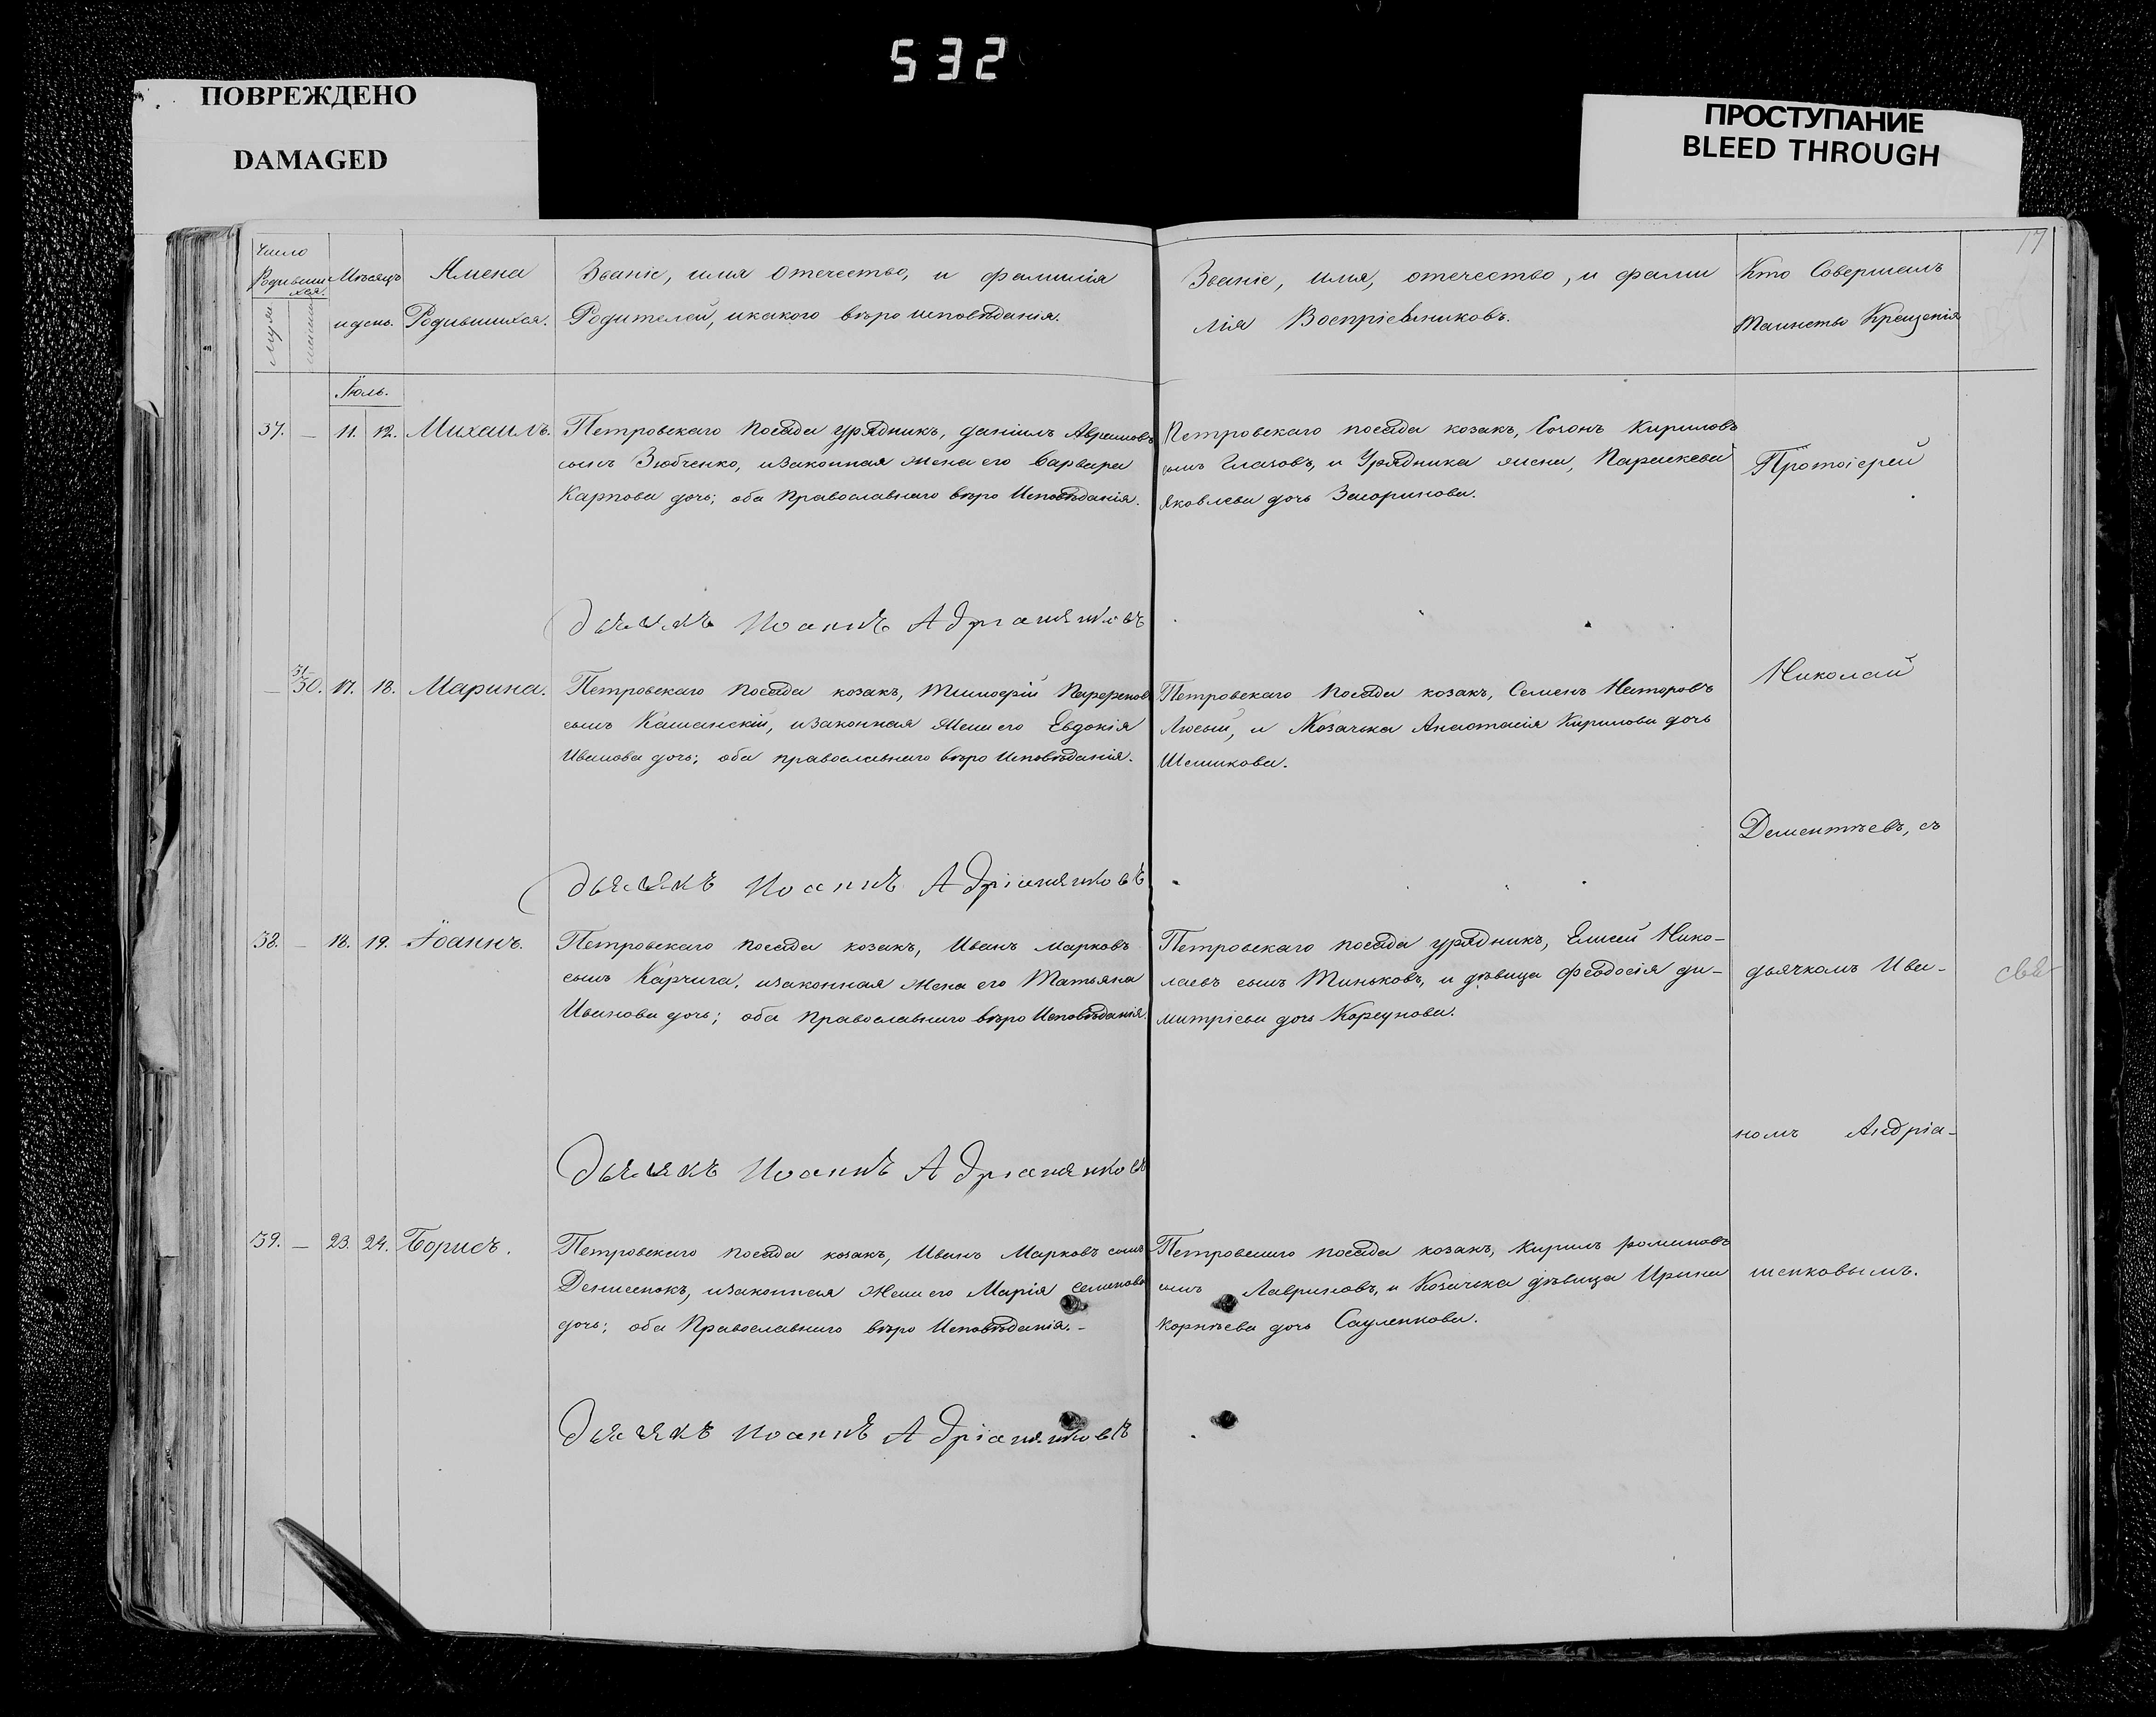 532
ПОВРЕЖДЕНО
DAMAGED
ПРОСТУПАНИЕ
BLEED THROUGH
17
Число Родивши хся.
муж
женск
Мѣсяцъ
и день.
Имена
Родившихся.
Званіе, имя отечество, и фамилія
Родителей, и какого вѣро исповѣданія.
Званіе, имя, отечество, и фами
лія Воспріемниковъ.
Кто Совершалъ
Таинство Крещенія
Іюль.
37. — 11. 12. Михаилъ.
Петровскаго посада урядникъ, Даніилъ Аврамовъ
сынъ Зюбченко, и законная жена его Варвара
Карпова дочь; оба Православнаго вѣро Исповѣданія.
Петровскаго посада козакъ, Кирилов
сынъ Глазовъ, и Урядника жена, Параскева
Яковлева дочь
Протоіерей
дьячекъ Иоаннъ Адріаненковъ
— 31 30. 17. 18. Марина.
Петровскаго посада козакъ, Тимофей Парфенов
сынъ Кашанскій, и законная Жена его Евдокія
Иванова дочь; оба православнаго вѣро Исповѣданія.
Петровскаго посада козакъ, Семенъ Несторовъ
Лысый, и Козачка Анастасія Кирилова дочь
Николай
Дементьевъ, съ
дьячекъ Иоаннъ Адріаненковъ
38. — 18. 19. Іоаннъ.
Петровскаго посада козакъ, Иванъ Марковъ
сынъ Карчига, и законная жена его Татьяна
Иванова дочь; оба Православнаго вѣро Исповѣданія.
Петровскаго посада урядникъ, Елисей Нико-
лаевъ сынъ Миньковъ, и дѣвица Феодосія Ди-
митріева дочь Корсунова.
дьячкомъ Ива-
номъ Андріа-
дьячекъ Иоаннъ Адріаненков
39. — 23. 24. Борисъ.
Петровскаго посада козакъ, Иванъ Марковъ сынъ
Денисенокъ, и законная Жена его Марія Семенова
дочь; оба Православнаго вѣро Исповѣданія. -
Петровскаго посада козакъ, Кирилъ Романовъ
сынъ Лавриновъ, и Козачка дѣвица Ирина
Корнѣева дочь Сауленкова.
ненковымъ.
дьячекъ Иоаннъ Адріаненковъ